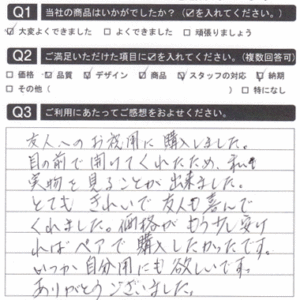 Q1 当社の商品はいかがでしたか？（☑を入れてください。）
☑大変よくできました □よくできました □頑張りましょう
Q2 ご満足いただけた項目に☑を入れてください。（複数回答可）
□価格 ☑品質 ☑デザイン ☑商品 ☑スタッフの対応 ☑納期
□その他（ ） □特になし
Q3 ご利用にあたってご感想をおよせください。
友人へのお歳用に購入しました。
目の前で開けてくれたため、私も
実物を見ることが出来ました。
とてもきれいで友人も喜んで
くれました。価格がもう少し安け
ればペアで購入したかったです。
いつか自分用にも欲しいです。
ありがとうございました。